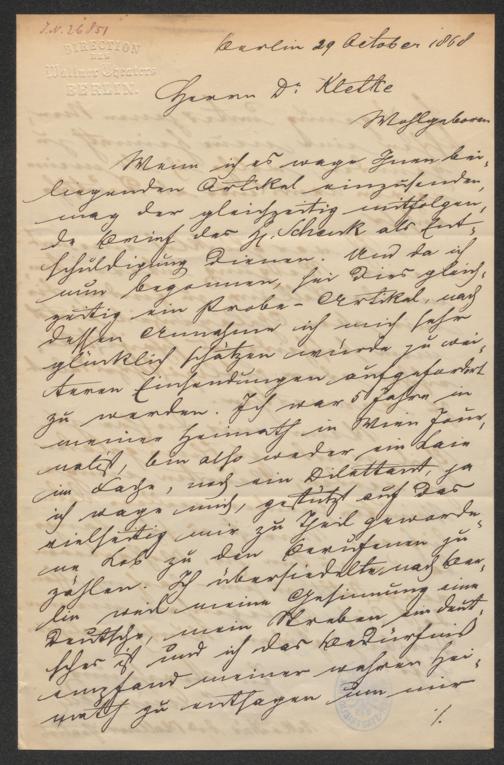 J.N. 26851
DIRECTION
DES
Wallner-Theaters
BERLIN.
Berlin 29 October 1868
Herrn Dr. Kletke
Wohlgeboren
Wenn ich es wage Ihnen bei-
liegenden Artikel einzusenden,
mag der gleichzeitig mitfolgen,
de Brief des H. Schenk als Ent-
schuldigung dienen. Und da ich
nun begonnen, sei dies gleich-
zeitig ein Probe-Artikel, nach
dessen Annahme ich mich sehr
glücklich schätzen würde zu wei-
teren Einsendungen aufgefordert
zu werden. Ich war 5 Jahre in
meiner Heimath in Wien Jour,
nalist, bin also weder ein Laie
im Fache, noch ein Dilettant, ja
ich wage mich, gestützt auf das
vielseitig mir zu Theil geworde-
ne Lob zu den Berufenen zu
zählen. Ich übersiedelte nach Ber-
lin weil meine Gesinnung eine
Deutsche, mein Streben ein deut-
sches ist und ich das Bedürfniß
empfand meiner wahren Hei-
math zu entsagen um mir
./.